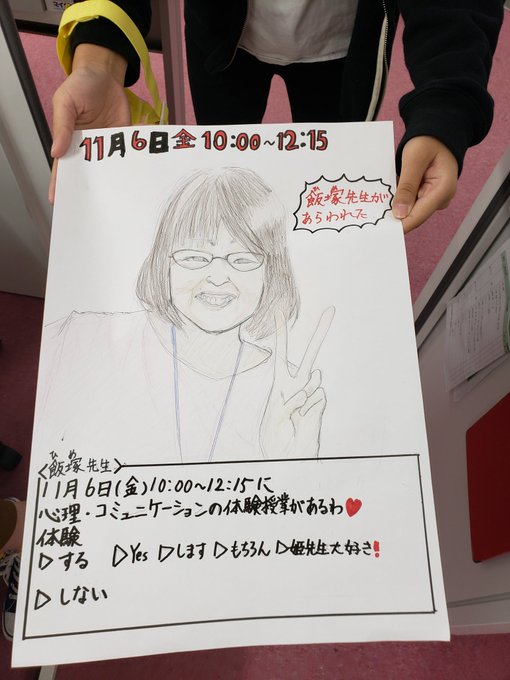 11月6日金 10:00~12:15
飯塚先生が
あらわれた
<飯塚先生>
11月6日(金)10:00~12:15に
心理・コミュニケーションの体験授業があるわ♥
体験
▷する ▷Yes ▷します ▷もちろん ▷姫先生大好き!
▷しない